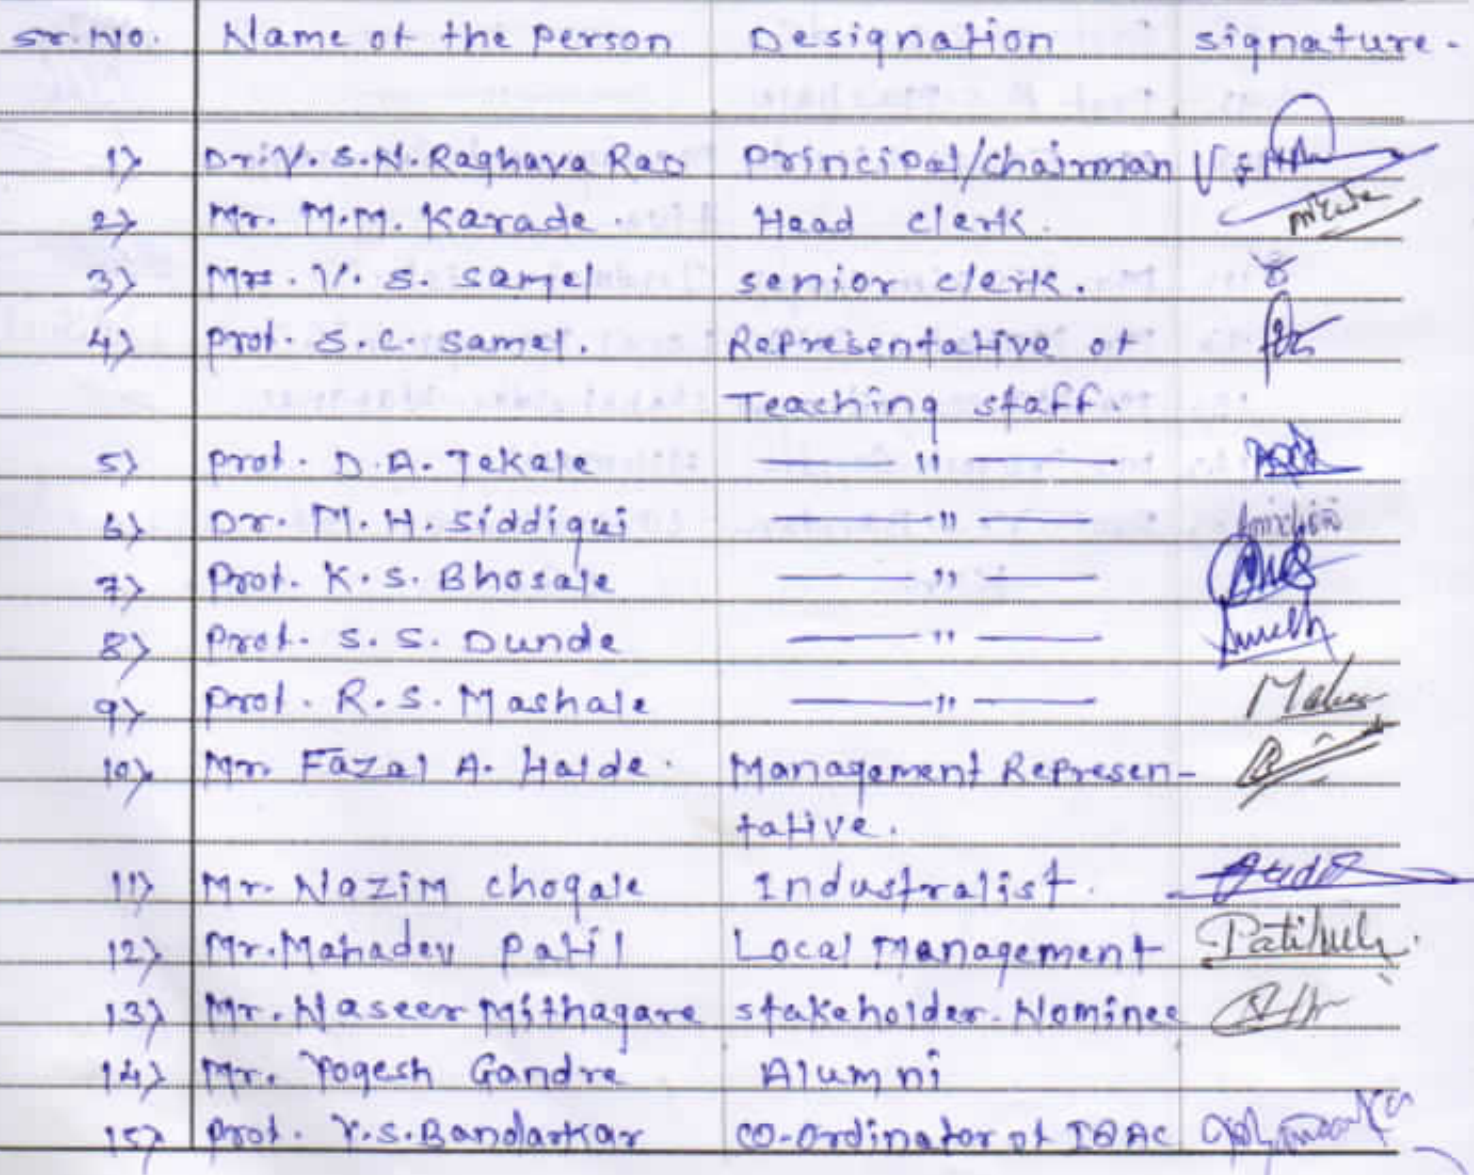 Sr. No. Name of the Person Designation Signature.
1) Dr. V. S. N. Raghava Rao Principal/Chairman
2) Mr. M.M. Karade. Head Clerk.
3) Mrs. V. S. Samel Senior Clerk.
4) Prof. S. C. Samel. Representative of
Teaching Staff.
5) Prof. D. A. Tekale — " —
6) Dr. M. H. Siddiqui — " —
7) Prof. K. S. Bhosale — " —
8) Prof. S. S. Dunde — " —
9) Prof. R. S. Mashale — " —
10) Mr. Fazal A. Halde. Management Represen-
tative.
11) Mr. Nazim Chogale Industralist.
12) Mr. Mahadev Patil Local Management
13) Mr. Naseer Mithagare Stakeholder. Nominee
14) Mr. Yogesh Gandre Alumni
15) Prof. Y.S. Bandarkar Co-Ordinator of IQAC